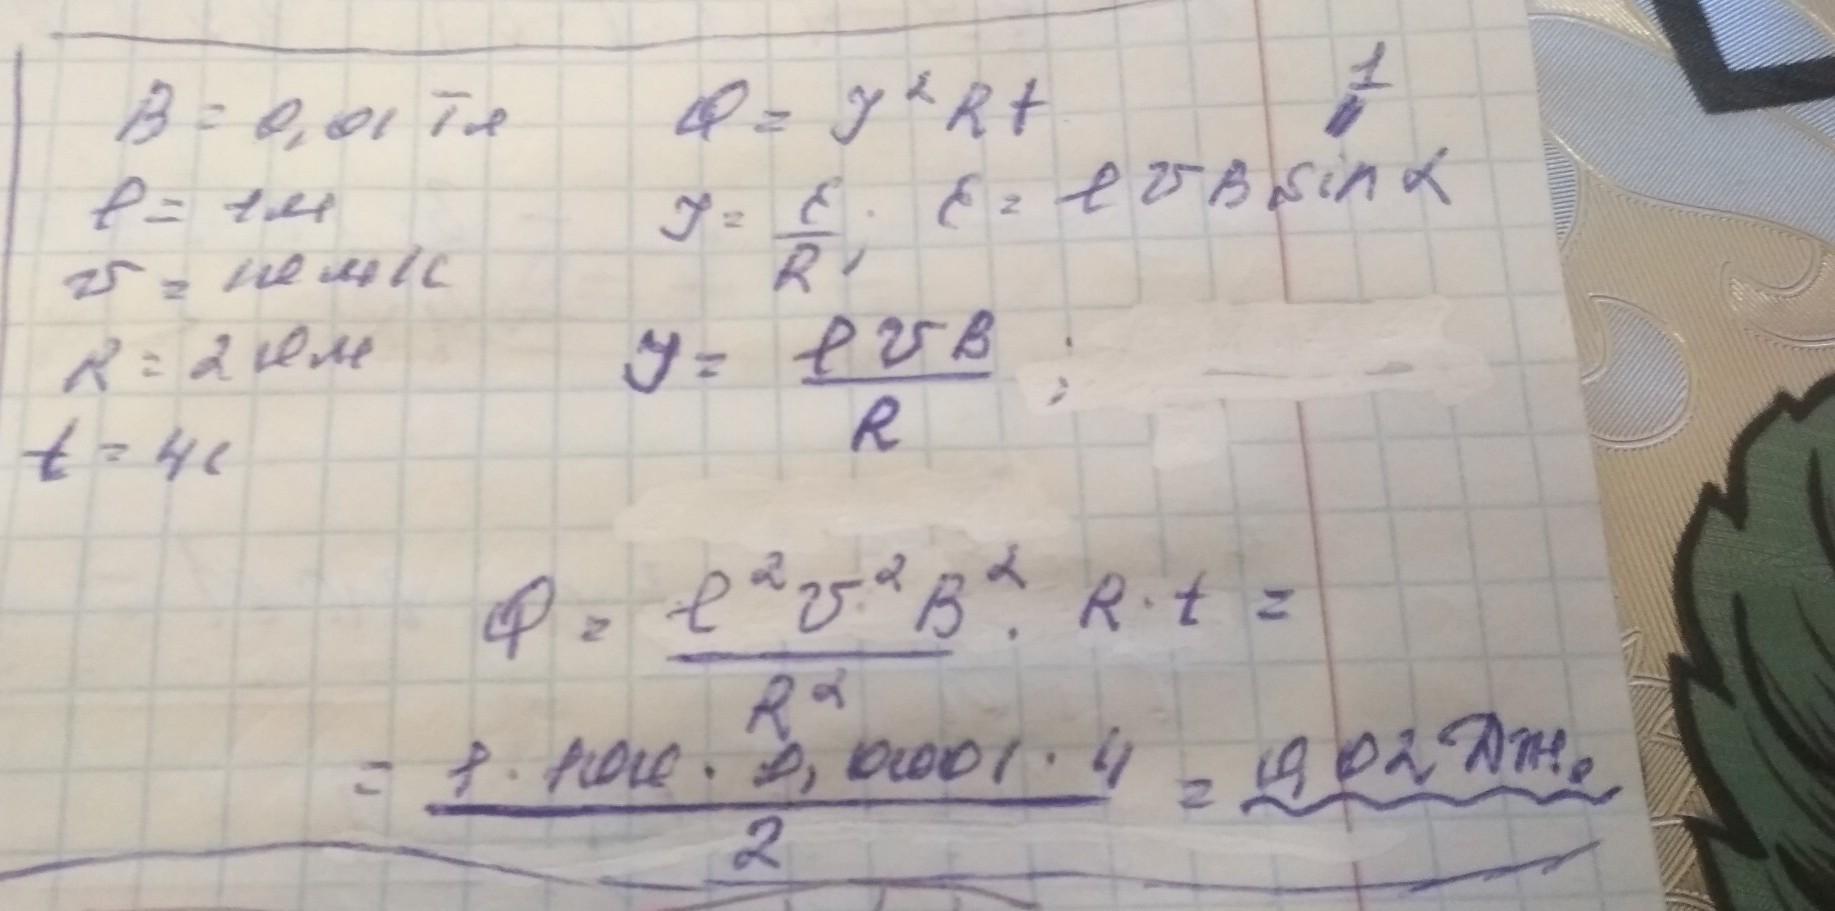 B = 0,01 Тл
l = 1м
v = 10 м/с
R = 2 Ом
t = 4с
Q = I² R t
1
I = ℰ/R, ℰ = l v B sin α
I = l v B / R ;
Q = l² v² B² / R² · R · t =
= 1 · 100 · 0,0001 · 4 / 2 = 0,02 Дж.